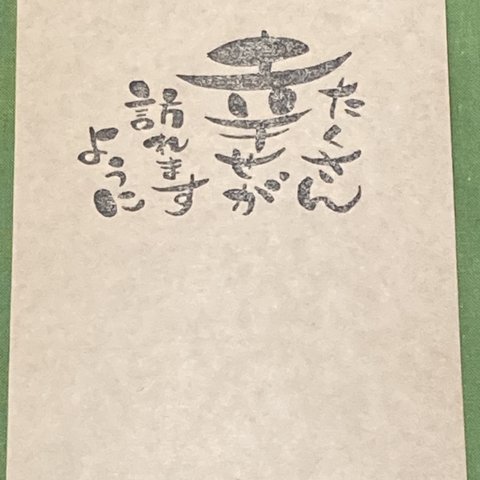 たくさん
幸せが
訪れます
ように